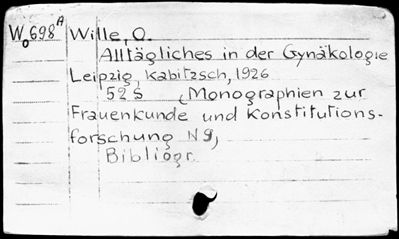 W₀698ᴬ Wille, O.
Alltägliches in der Gynäkologie
Leipzig, Kabitzsch, 1926
52 S (Monographien zur
Frauenkunde und Konstitutions-
forschung N 9)
Bibliogr.